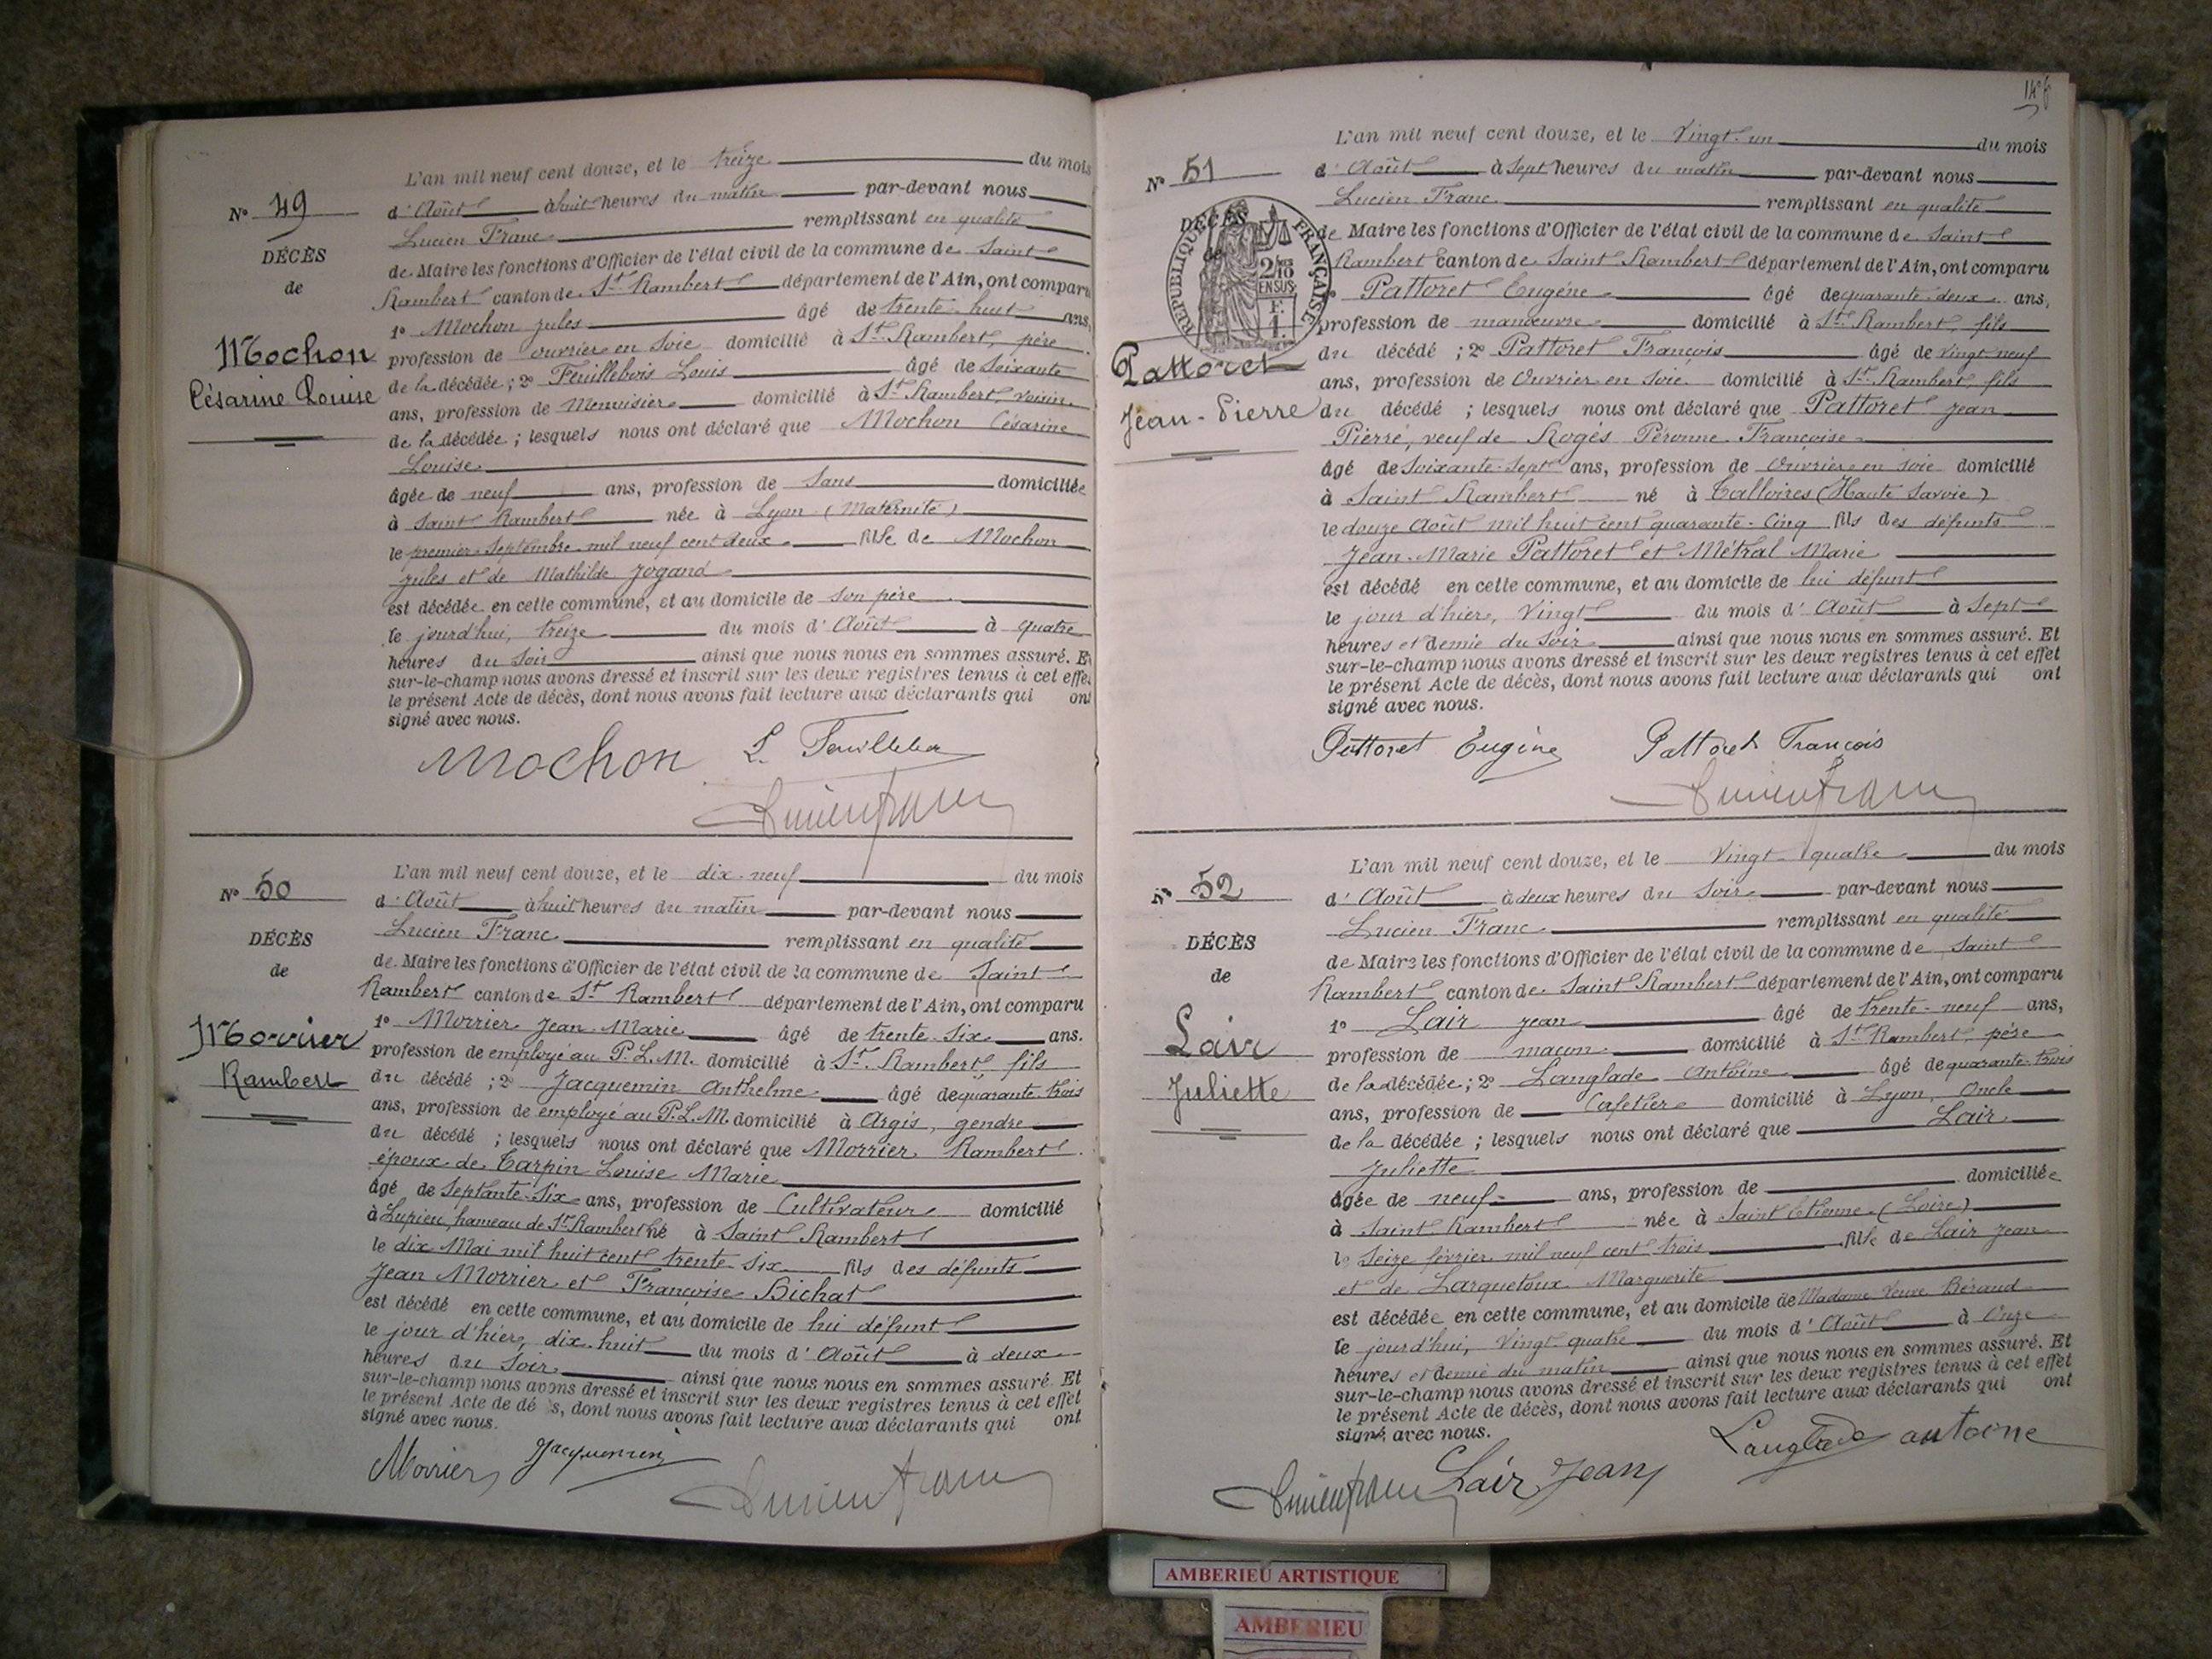 L'an mil neuf cent douze, et le treize du mois
Nº 49
d'Août à huit heures du matin par-devant nous
Lucien Franc remplissant en qualité
DÉCÈS
de Maire les fonctions d'Officier de l'état civil de la commune de Saint
de
Rambert canton de St Rambert département de l'Ain, ont comparu
1º Mochon Jules âgé de trente-huit ans,
Mochon
profession de ouvrier en soie domicilié à St Rambert, père
Césarine Louise
de la décédée; 2º Feuillebois Louis âgé de Soixante
ans, profession de Menuisier domicilié à St Rambert, voisin
de la décédée; lesquels nous ont déclaré que Mochon Césarine
Louise
âgée de neuf ans, profession de Sans domiciliée
à Saint Rambert née à Lyon (Maternité)
le premier Septembre mil neuf cent deux fille de Mochon
Jules et de Mathilde Jogand
est décédée en cette commune, et au domicile de son père
le jourd'hui, treize du mois d'Août à quatre
heures du Soir ainsi que nous nous en sommes assuré. Et
sur-le-champ nous avons dressé et inscrit sur les deux registres tenus à cet effet
le présent Acte de décès, dont nous avons fait lecture aux déclarants qui ont
signé avec nous.
Mochon L. Feuillebois
Lucien Franc
L'an mil neuf cent douze, et le dix-neuf du mois
Nº 50
d'Août à huit heures du matin par-devant nous
Lucien Franc remplissant en qualité
DÉCÈS
de Maire les fonctions d'Officier de l'état civil de la commune de Saint
de
Rambert canton de St Rambert département de l'Ain, ont comparu
1º Morrier Jean-Marie âgé de trente-six ans.
Morrier
profession de employé au P.L.M. domicilié à St Rambert fils
Rambert
du décédé; 2º Jacquemin Anthelme âgé de quarante-trois
ans, profession de employé au P.L.M. domicilié à Argis, gendre
du décédé; lesquels nous ont déclaré que Morrier Rambert
époux de Tarpin Louise Marie
âgé de Septante-Six ans, profession de Cultivateur domicilié
à Lupieu, hameau de St Rambert né à Saint Rambert
le dix Mai mil huit cent trente-six fils des défunts
Jean Morrier et Françoise Bichat
est décédé en cette commune, et au domicile de lui défunt
le jour d'hier, dix-huit du mois d'Août à deux
heures du Soir ainsi que nous nous en sommes assuré. Et
sur-le-champ nous avons dressé et inscrit sur les deux registres tenus à cet effet
le présent Acte de dé s, dont nous avons fait lecture aux déclarants qui ont
signé avec nous.
Morrier Jacquemin
Lucien Franc
L'an mil neuf cent douze, et le Vingt-un du mois
Nº 51
d'Août à Sept heures du matin par-devant nous
Lucien Franc remplissant en qualité
DÉCÈS
de Maire les fonctions d'Officier de l'état civil de la commune de Saint
de
RÉPUBLIQUE FRANÇAISE
2/10 EN SUS
F. 1.
Rambert canton de Saint Rambert département de l'Ain, ont comparu
Pattoret Eugène âgé de quarante-deux ans,
profession de manœuvre domicilié à St Rambert, fils
Pattoret
du décédé; 2º Pattoret François âgé de vingt-neuf
ans, profession de Ouvrier en soie domicilié à St Rambert, fils
Jean-Pierre
du décédé; lesquels nous ont déclaré que Pattoret Jean
Pierre, veuf de Rogès Péronne Françoise
âgé de Soixante-sept ans, profession de Ouvrier en soie domicilié
à Saint Rambert né à Talloires (Haute Savoie)
le douze Août mil huit cent quarante-Cinq fils des défunts
Jean-Marie Pattoret et Métral Marie
est décédé en cette commune, et au domicile de lui défunt
le jour d'hier, Vingt du mois d'Août à Sept
heures et demie du Soir ainsi que nous nous en sommes assuré. Et
sur-le-champ nous avons dressé et inscrit sur les deux registres tenus à cet effet
le présent Acte de décès, dont nous avons fait lecture aux déclarants qui ont
signé avec nous.
Pattoret Eugène Pattoret François
Lucien Franc
L'an mil neuf cent douze, et le Vingt-quatre du mois
Nº 52
d'Août à deux heures du Soir par-devant nous
Lucien Franc remplissant en qualité
DÉCÈS
de Maire les fonctions d'Officier de l'état civil de la commune de Saint
de
Rambert canton de Saint Rambert département de l'Ain, ont comparu
1º Lair Jean âgé de trente-neuf ans,
Lair
profession de maçon domicilié à St Rambert, père
Juliette
de la décédée; 2º Langlade Antoine âgé de quarante-trois
ans, profession de Cafetier domicilié à Lyon, Oncle
de la décédée; lesquels nous ont déclaré que Lair
Juliette
âgée de neuf ans, profession de domiciliée
à Saint Rambert née à Saint Etienne (Loire)
le Seize février mil neuf cent trois fille de Lair Jean
et de Larquetoux Marguerite
est décédée en cette commune, et au domicile de Madame Veuve Béraud
le jourd'hui, Vingt-quatre du mois d'Août à Onze
heures et demie du matin ainsi que nous nous en sommes assuré. Et
sur-le-champ nous avons dressé et inscrit sur les deux registres tenus à cet effet
le présent Acte de décès, dont nous avons fait lecture aux déclarants qui ont
signé avec nous.
Langlade antoine
Lucien Franc Lair Jean
AMBERIEU ARTISTIQUE
AMBERIEU